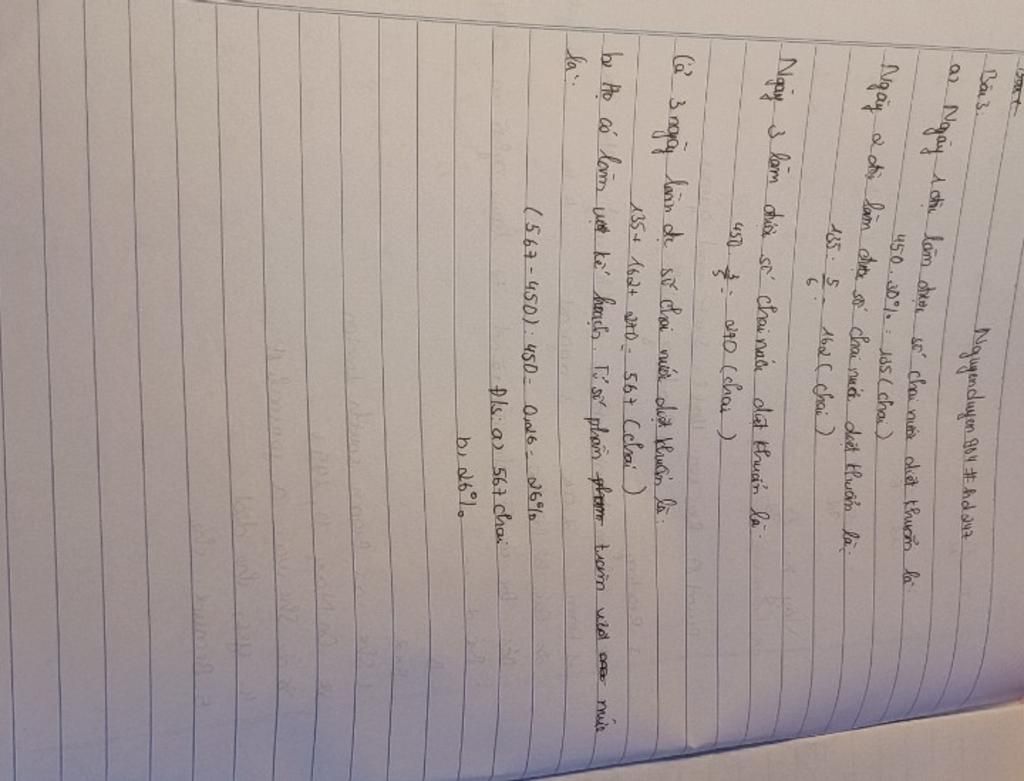 Bài 3.
Nguyenduyen804#hd247
a) Ngày 1 đội làm được số chai nước diệt khuẩn là:
450 . 30% = 135 (chai)
Ngày 2 đội làm được số chai nước diệt khuẩn là:
135 : 5/6 = 162 (chai)
Ngày 3 làm được số chai nước diệt khuẩn là:
450 . 3/5 = 270 (chai)
Cả 3 ngày làm đc số chai nước diệt khuẩn là:
135 + 162 + 270 = 567 (chai)
b) Họ có làm vượt kế hoạch. Tỉ số phần trăm vượt mức
là:
(567 - 450) : 450 = 0,26 = 26%
Đ/s: a) 567 chai
b) 26%